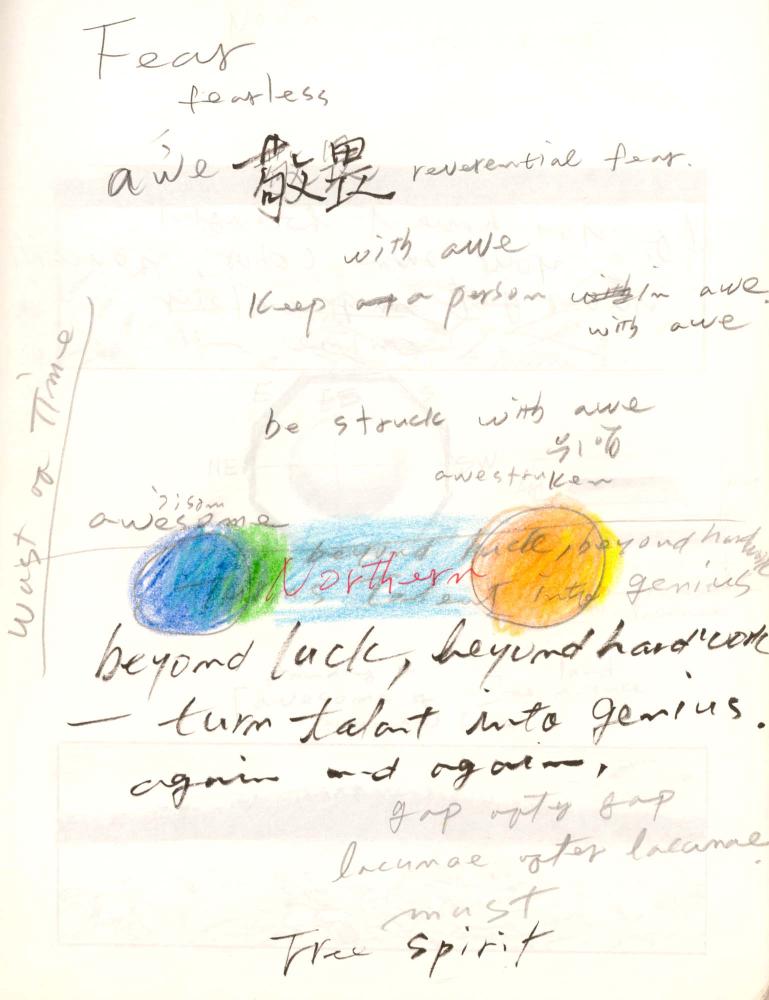 Fear
fearless
awe 敬畏 reverential fear.
with awe
Keep a person in awe.
with awe
be struck with awe
awestruken
awesome
beyond luck, beyond hardwork
Northern
turn talent into genius
beyond luck, beyond hardwork
— turn talant into genius.
again and again,
gap after gap
lacunae after lacunae.
must
Tree Spirit
Wast of Time